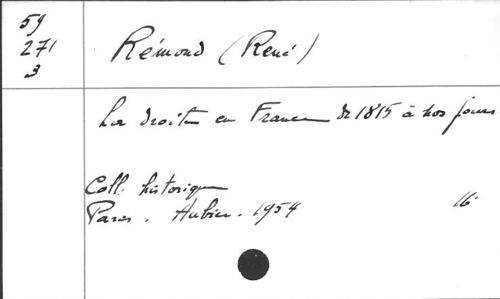 59
271
3
Rémond (René)
La droite en France de 1815 à nos jours
Coll. historique
Paris. Aubier. 1954 16°